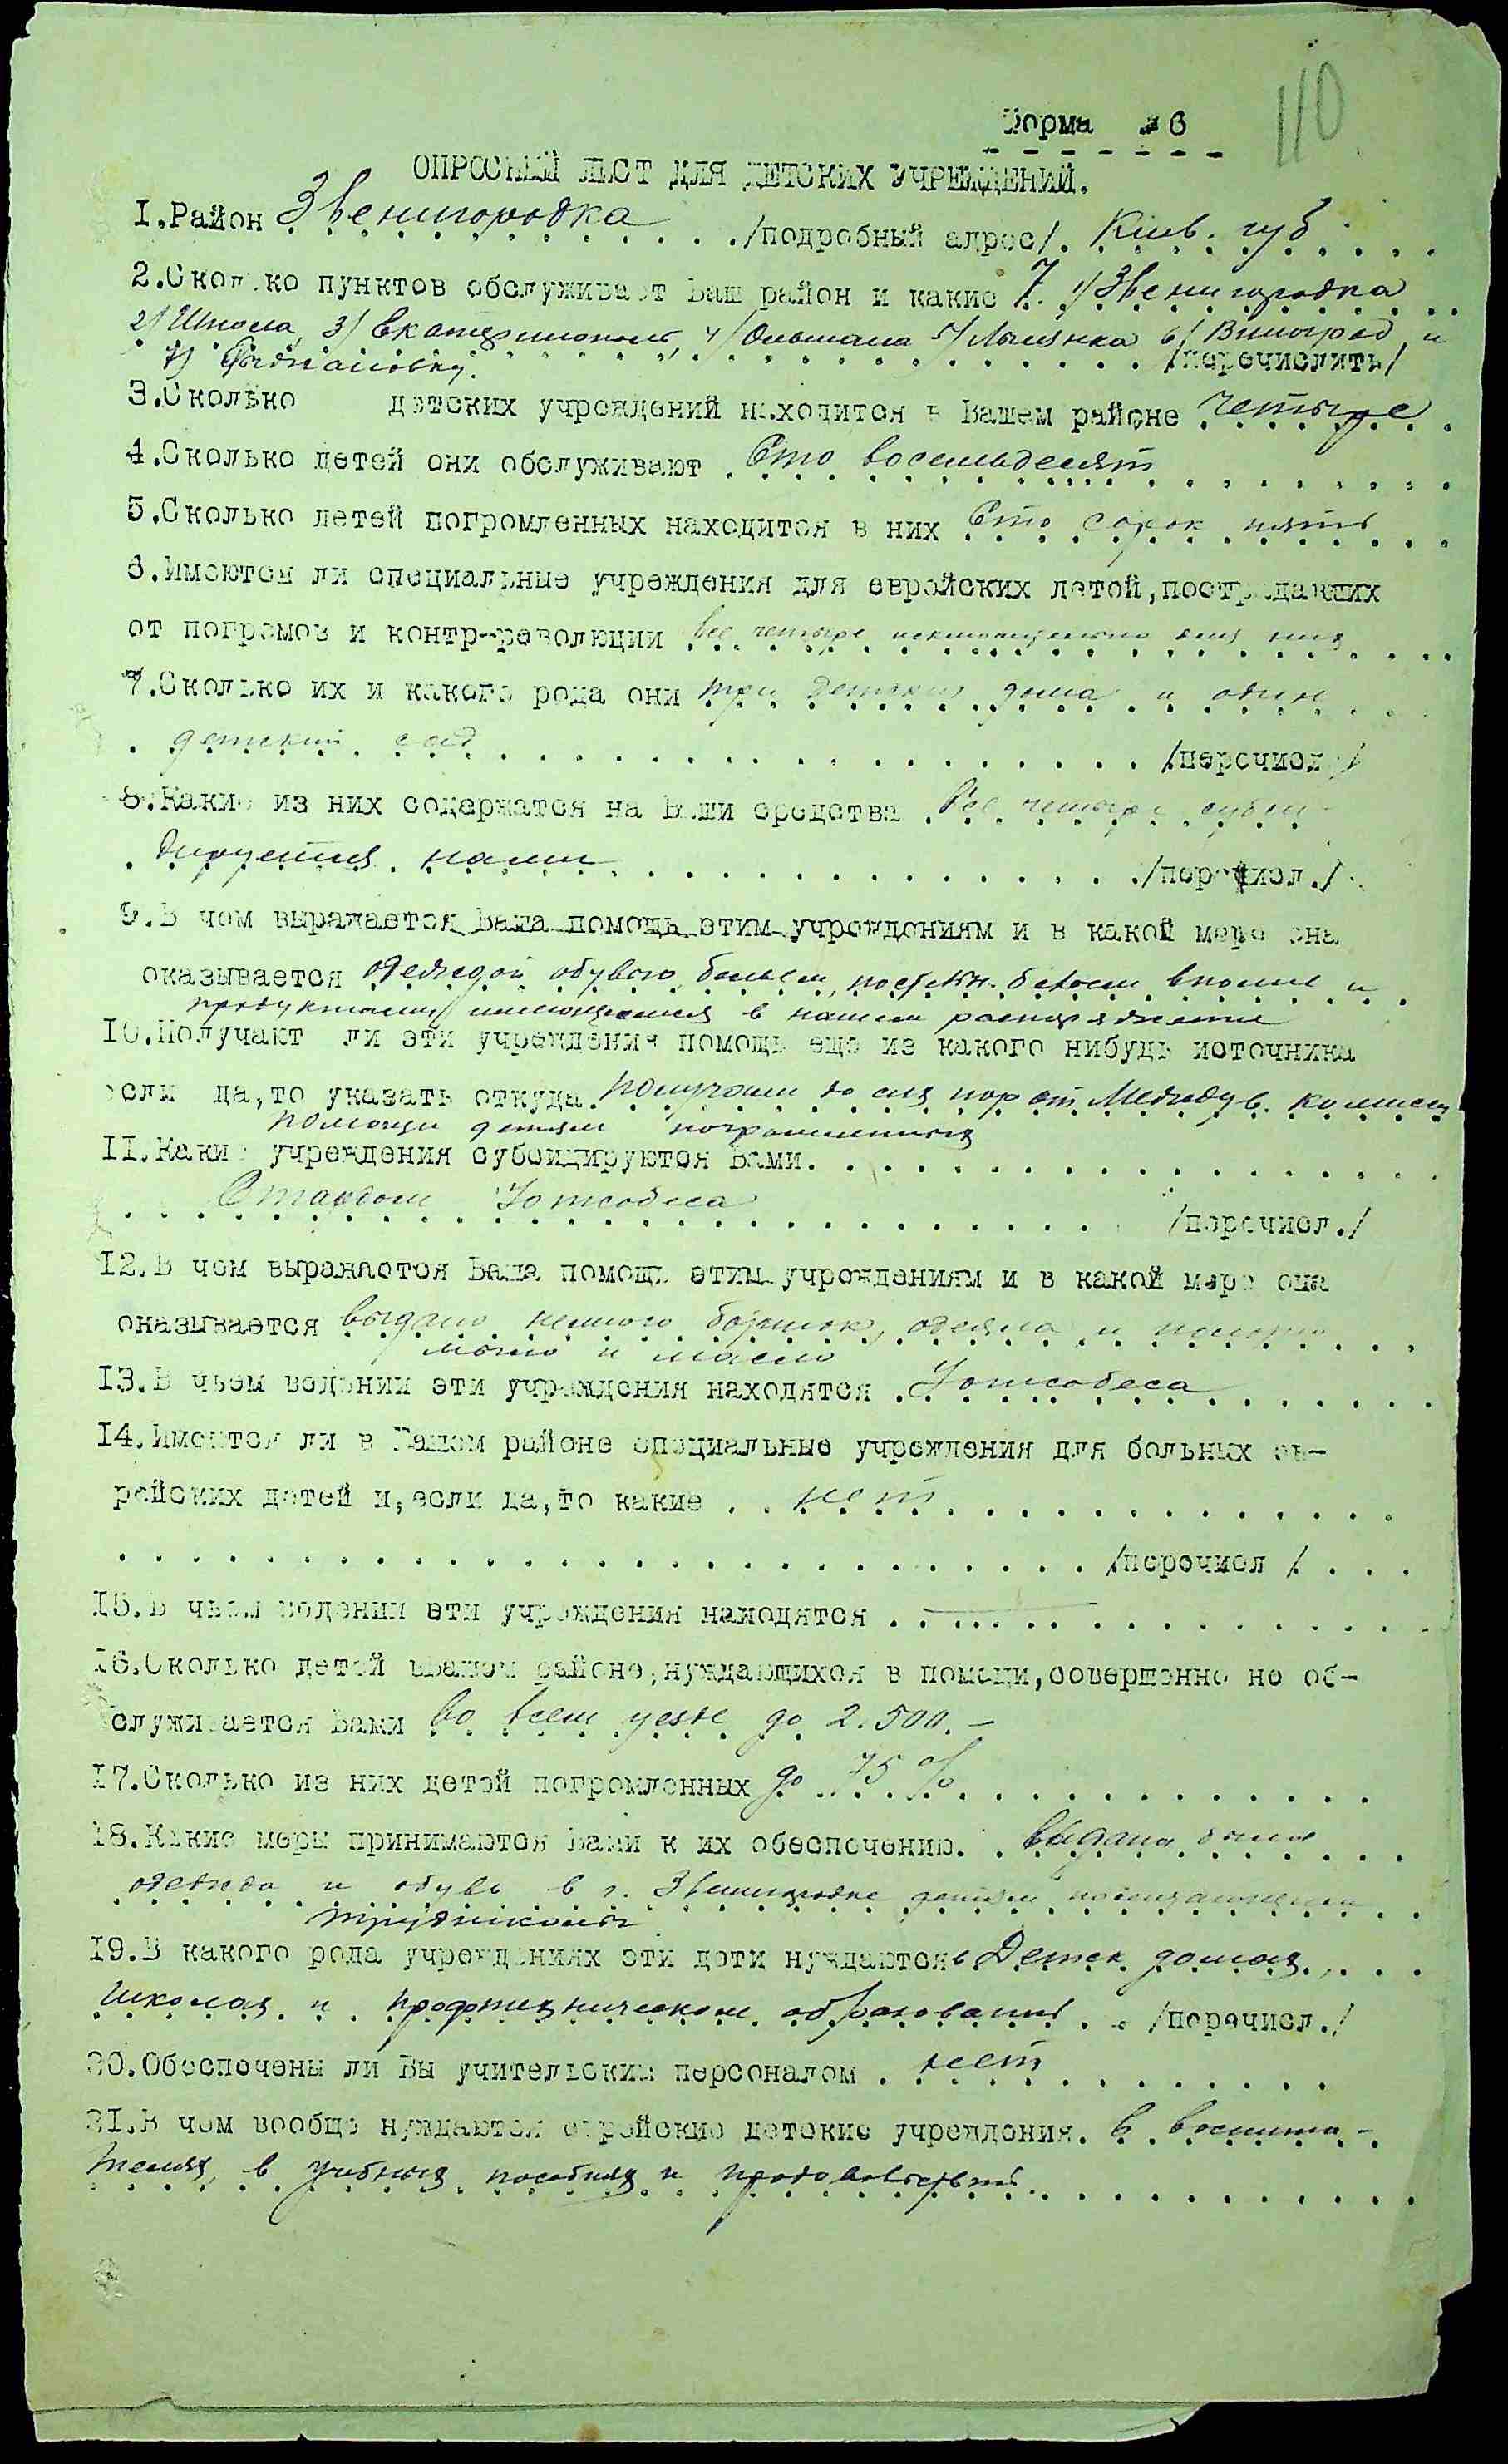 110
Форма № 6
ОПРОСНЫЙ ЛИСТ ДЛЯ ДЕТСКИХ УЧРЕЖДЕНИЙ.
1.Район Звенигородка /подробный адрес/ Киев. губ
2.Сколько пунктов обслуживает Ваш район и какие 7. 1/ Звенигородка
2/ Шпола, 3/ Екатеринополь, 4/ Ольшана 5/ Лысянка 6/ Виноград и
7/ /перечислить/
3.Сколько детских учреждений находится в Вашем районе четыре
4.Сколько детей они обслуживают Сто восемьдесят
5.Сколько детей погромленных находится в них Сто сорок пять
6.Имеются ли специальные учреждения для еврейских детей,пострадавших
от погромов и контр-революции все четыре исключительно для них
7.Сколько их и какого рода они три детских дома и один
детский сад /перечисл./
8.Какие из них содержатся на Ваши средства Все четыре субси-
дируются нами /перечисл./
9.В чем выражается Ваша помощь этим учреждениям и в какой мере она
оказывается одеждой обувью, бельем, постельн. бельем вполне и
продуктами имеющимися в нашем распоряжении
10.Получают ли эти учреждения помощь еще из какого нибудь источника
если да,то указать откуда получали до сих пор от Междув. комиссии
помощи детям погромленным
11.Какие учреждения субсидируются Вами
Собеса /перечисл./
12.В чем выражается Ваша помощь этим учреждениям и в какой мере она
оказывается выдано немного одеяла и
мыло и масло
13.В чьем ведении эти учреждения находятся Уотсобеса
14.Имеются ли в Вашем районе специальные учреждения для больных ев-
рейских детей и,если да,то какие нет
/перечисл /
15.В чьем ведении эти учреждения находятся —
16.Сколько детей вВашем районе,нуждающихся в помощи,совершенно не об-
служивается Вами во всем уезде до 2.500.—
17.Сколько из них детей погромленных до 75 %
18.Какие меры принимаются Вами к их обеспечению. выдана была
одежда и обувь в г. Звенигородке детям
19.В какого рода учреждениях эти дети нуждаются в Детск. домах,
школах и профтехническом образовании /перечисл./
20.Обеспечены ли Вы учительским персоналом нет
21.В чем вообще нуждаются еврейские детские учреждения. в воспита-
телях, в учебных пособиях и продовольствии